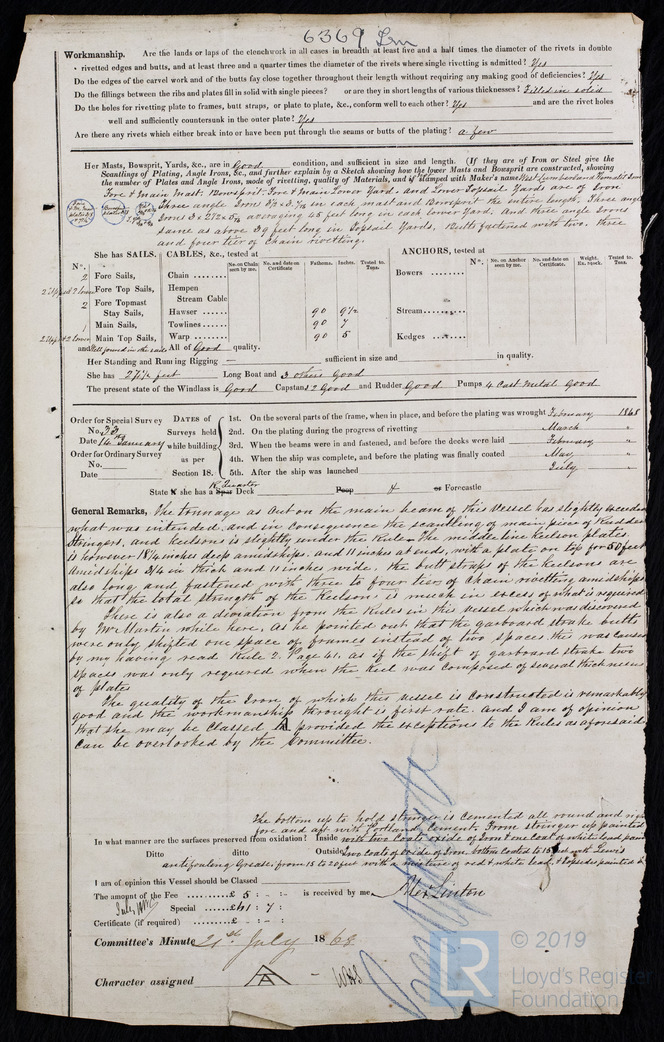 6369 Irn
Workmanship. Are the lands or laps of the clenchwork in all cases in breadth at least five and a half times the diameter of the rivets in double
rivetted edges and butts, and at least three and a quarter times the diameter of the rivets where single rivetting is admitted? Yes
Do the edges of the carvel work and of the butts fay close together throughout their length without requiring any making good of deficiencies? Yes
Do the fillings between the ribs and plates fill in solid with single pieces? or are they in short lengths of various thicknesses? Filled in solid
Do the holes for rivetting plate to frames, butt straps, or plate to plate, &c., conform well to each other? Yes and are the rivet holes
well and sufficiently countersunk in the outer plate? Yes
Are there any rivets which either break into or have been put through the seams or butts of the plating? a few
Her Masts, Bowsprit, Yards, &c., are in Good condition, and sufficient in size and length. (If they are of Iron or Steel give the
Scantlings of Plating, Angle Irons, &c., and further explain by a Sketch showing how the lower Masts and Bowsprit are constructed, showing
the number of Plates and Angle Irons, mode of rivetting, quality of Materials, and if stamped with Maker's name
Fore & Main Mast. Bowsprit. Fore & Main Lower Yard. and Lower Topsail Yards are of Iron
Three angle Irons 3½ x 3 x 7/16 in each mast and Bowsprit the entire length. Three angle
Irons 3 x 2½ x 5/16 averaging 45 feet long in each lower Yard. And three angle Irons
same as above 39 feet long in Topsail Yards, Butts fastened with two. three
and four tier of chain rivetting.
She has SAILS. CABLES, &c., tested at ANCHORS, tested at
N°. No. on Chain seen by me. No. and date on Certificate Fathoms. Inches. Tested to. Tons. N°. No. on Anchor seen by me. No. and date on Certificate. Weight. Ex. Stock. Tested to. Tons.
2 Fore Sails, Chain ........ Bowers ........
Fore Top Sails, Hempen
2 Fore Topmast Stream Cable
Stay Sails, Hawser ...... 90 9½ Stream
1 Main Sails, Towlines...... 90 7
Main Top Sails, Warp ........ 90 5 Kedges
and Well found in the sails All of Good quality.
Her Standing and Running Rigging — sufficient in size and in quality.
She has 27½ feet Long Boat and 3 others Good
The present state of the Windlass is Good Capstan 2 Good and Rudder Good Pumps 4 Cast metal Good
Order for Special Survey
No. 33
Date 14 January
Order for Ordinary Survey
No.
Date
DATES of Surveys held while building as per Section 18.
1st. On the several parts of the frame, when in place, and before the plating was wrought February 1868
2nd. On the plating during the progress of rivetting March "
3rd. When the beams were in and fastened, and before the decks were laid February "
4th. When the ship was complete, and before the plating was finally coated May "
5th. After the ship was launched July "
R. Quarter
State if she has a Spar Deck Poop or Forecastle
General Remarks, The tonnage as cut on the main beam of this Vessel has slightly exceeded
what was intended, and in consequence the scantling of main piece of Rudder
Stringers, and Keelsons is slightly under the Rule. The middle line Keelson plates
is however 18¼ inches deep amidships, and 11 inches at ends, with a plate on top for 50 feet
Amidships 3/4 in thick and 11 inches wide. the butt straps of the Keelsons are
also long and fastened with three to four tiers of chain rivetting amidships
so that the total strength of the Keelson is much in excess of what is required
There is also a diviation from the Rules in this vessel which was discovered
by Mr Martin while here, As he pointed out that the garboard strake butts
were only shifted one space of frames instead of two spaces. the was caused
by my having read Rule 2. Page 41, as if the shift of garboard strake two
spaces was only required when the Keel was composed of several thickness
of plates
The quality of the Iron of which this vessel is constructed is remarkably
good and the workmanship throught is first rate. And I am of opinion
that she may be classed A provided the exceptions to the Rules as aforesaid
can be overlooked by the Committee.
The bottom up to hold stringer is cemented all round and
fore and aft with Portland Cement. From stringer up painted
In what manner are the surfaces preserved from oxidation? Inside with two coats oxide of Iron & one coat of white lead paint
Ditto ditto Outside Two coats of oxide of Iron. bottom coated to 15 feet with Lewis
antifouling Grease, from 15 to 20 feet with a mixture of red & white lead, & Topsides painted
I am of opinion this Vessel should be Classed
The amount of the Fee ..........£ 5 : - : - is received by me, Alex Linton
Special .......£41 : 7 :
Certificate (if required) ........£ - : - :
Committee's Minute 21st July 1868
Character assigned A
© 2019
LR
Lloyd's Register
Foundation